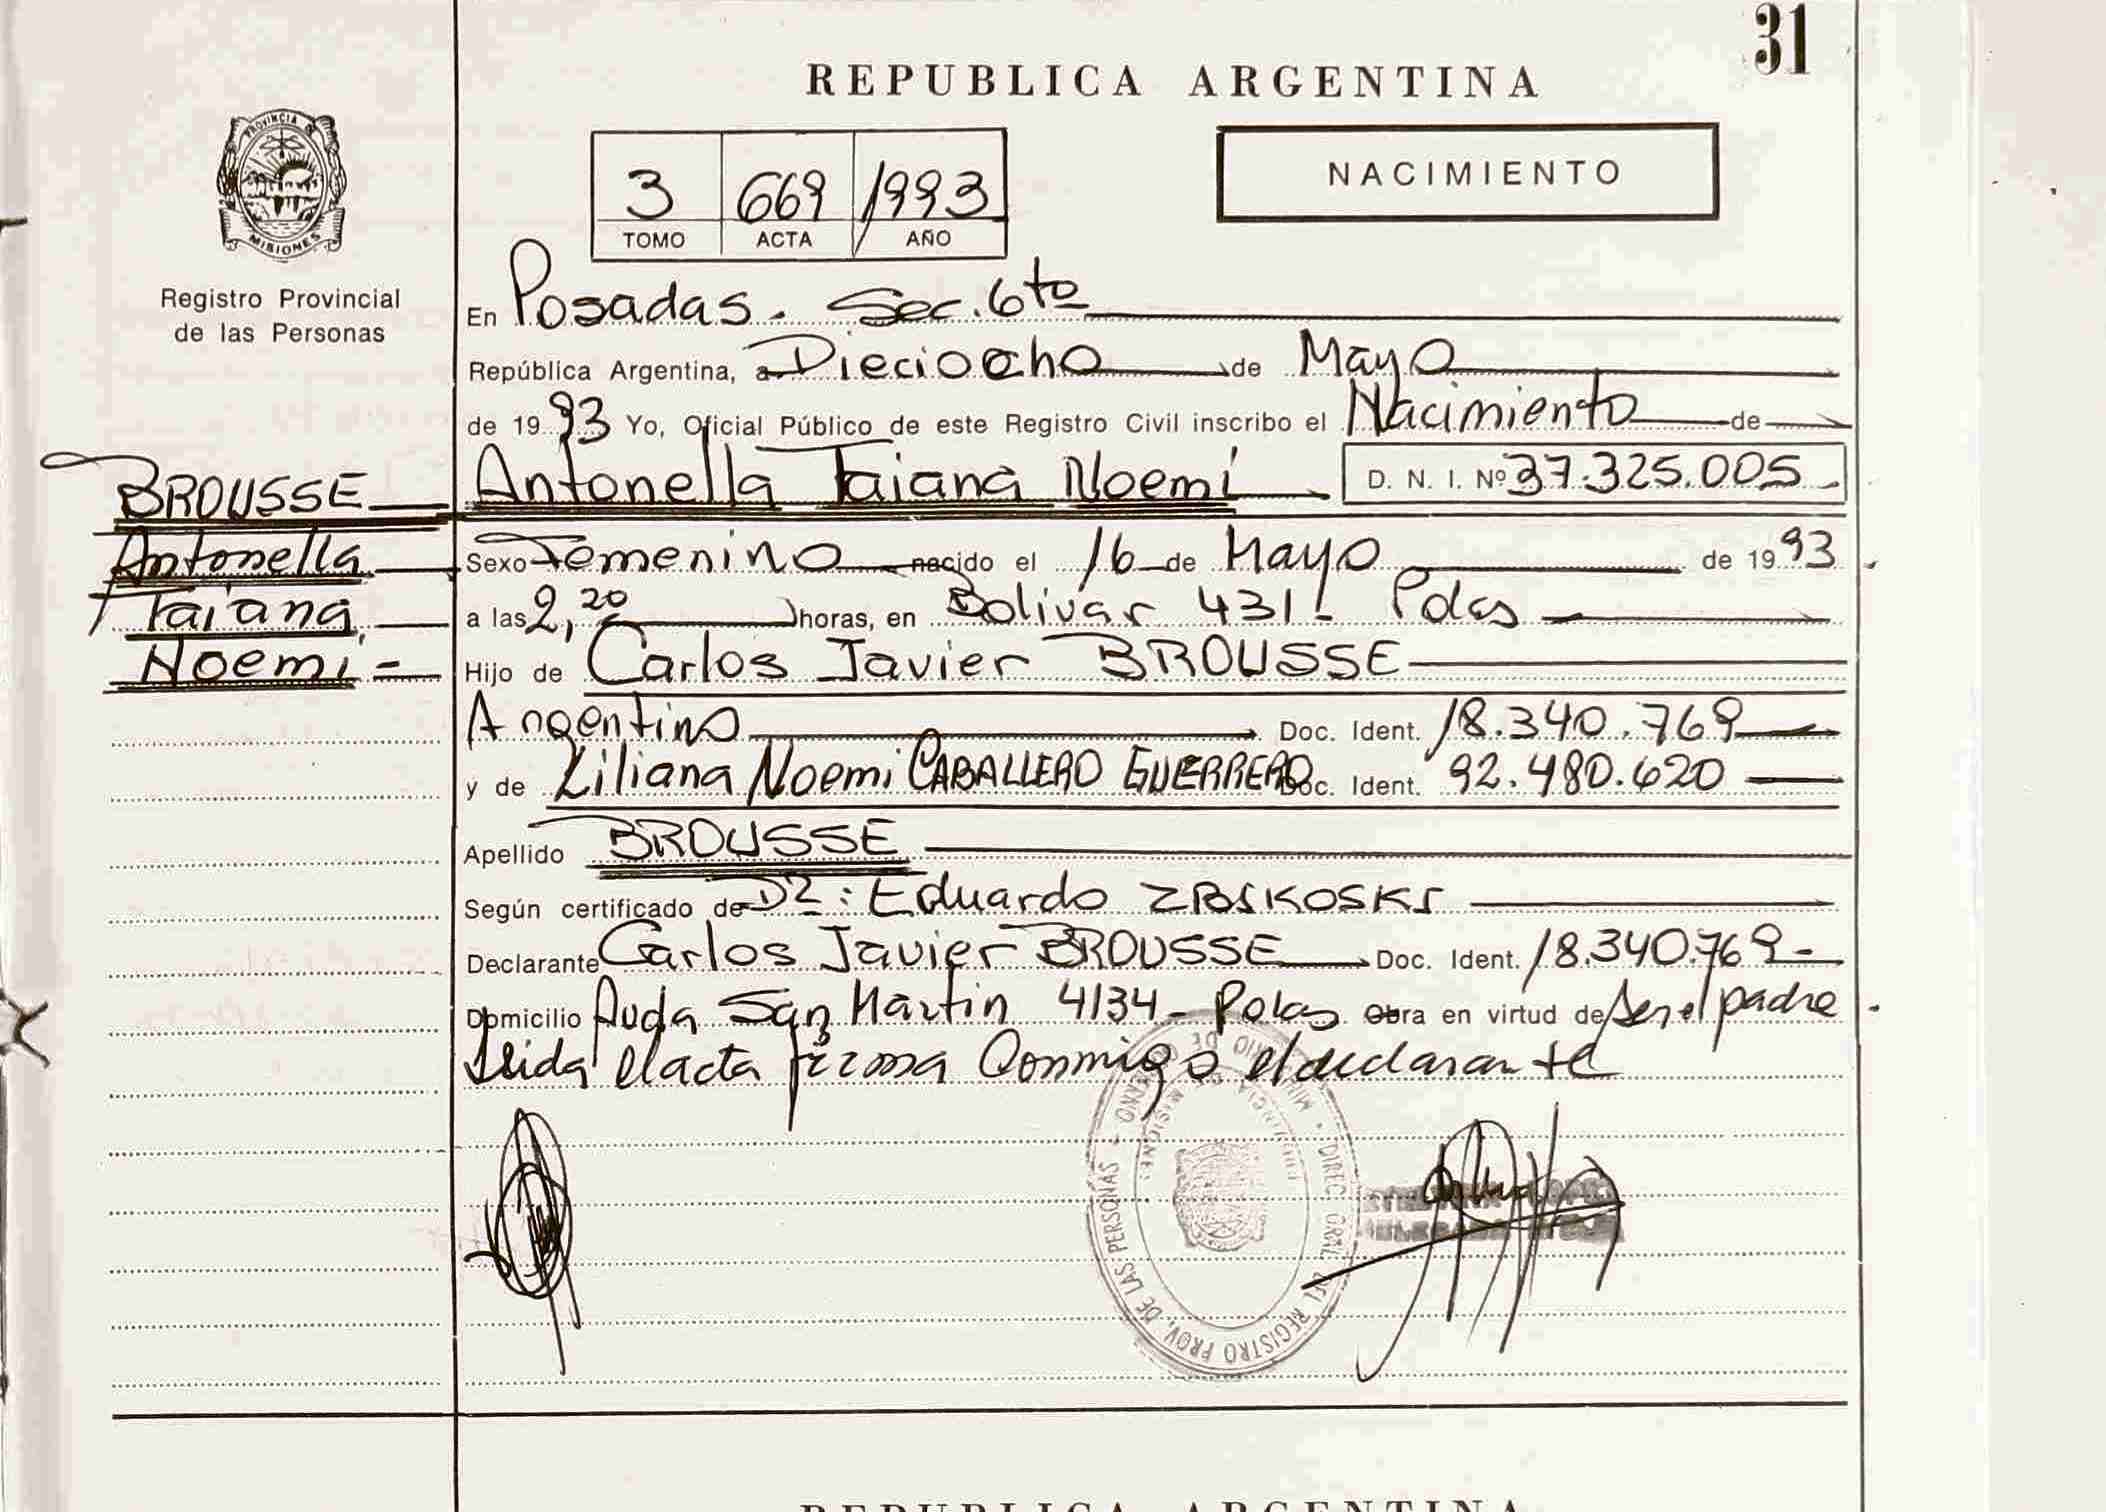 31
REPUBLICA ARGENTINA
PROVINCIA DE
MISIONES
Registro Provincial
de las Personas
3 669 1993
TOMO ACTA AÑO
NACIMIENTO
En Posadas. Sec. 6ta
República Argentina, a Dieciocho de Mayo
de 1993 Yo, Oficial Público de este Registro Civil inscribo el Nacimiento de
Antonella Taiana Noemi D. N. I. Nº 37.325.005
BROUSSE
Antonella
Taiana
Noemi -
Sexo Femenino nacido el 16 de Mayo de 1993
a las 2,20 horas, en Bolivar 431 - Pdas
Hijo de Carlos Javier BROUSSE
Argentino Doc. Ident. 18.340.769
y de Liliana Noemi CABALLERO GUERRERO Doc. Ident. 92.480.620
Apellido BROUSSE
Según certificado de Dr: Eduardo
Declarante Carlos Javier BROUSSE Doc. Ident. 18.340.769 -
Domicilio Avda San Martin 4134 - Pdas Obra en virtud de ser el padre
Leida el acta firma Conmigo el declarante
MINISTERIO DE GOBIERNO - DIREC. GRAL. DEL REGISTRO PROV. DE LAS PERSONAS
PROVINCIA DE MISIONES
REPUBLICA ARGENTINA